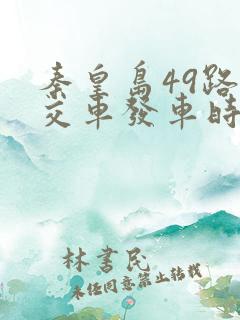 秦皇島49路
交車發車時
林書民
未经同意禁止转载